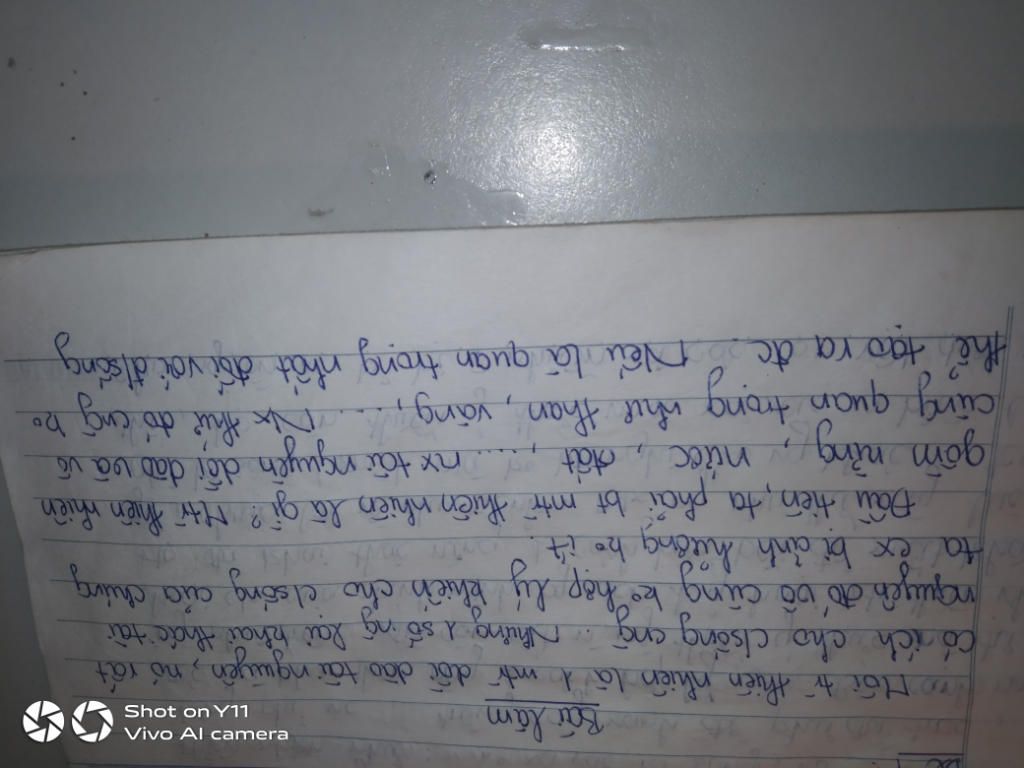 Bài làm
Môi tr thiên nhiên là 1 mtr dồi dào tài nguyên, nó rất
có ích cho c/sống cng. Nhưng 1 số ng lại khai thác tài
nguyên đó vô cùng ko hợp lý khiến cho c/sống của chúng
ta cx bị ảnh hưởng ko ít.
Đầu tiên, ta phải bt mtr thiên nhiên là gì? Mtr thiên nhiên
gồm nắng, nước, đất, .... nx tài nguyên dồi dào và vô
cùng quan trọng như than, vàng, .... Nx thứ đó cng ko
thể tạo ra đc. Nếu là quan trọng nhất đối với đ/sống
Shot on Y11
Vivo AI camera